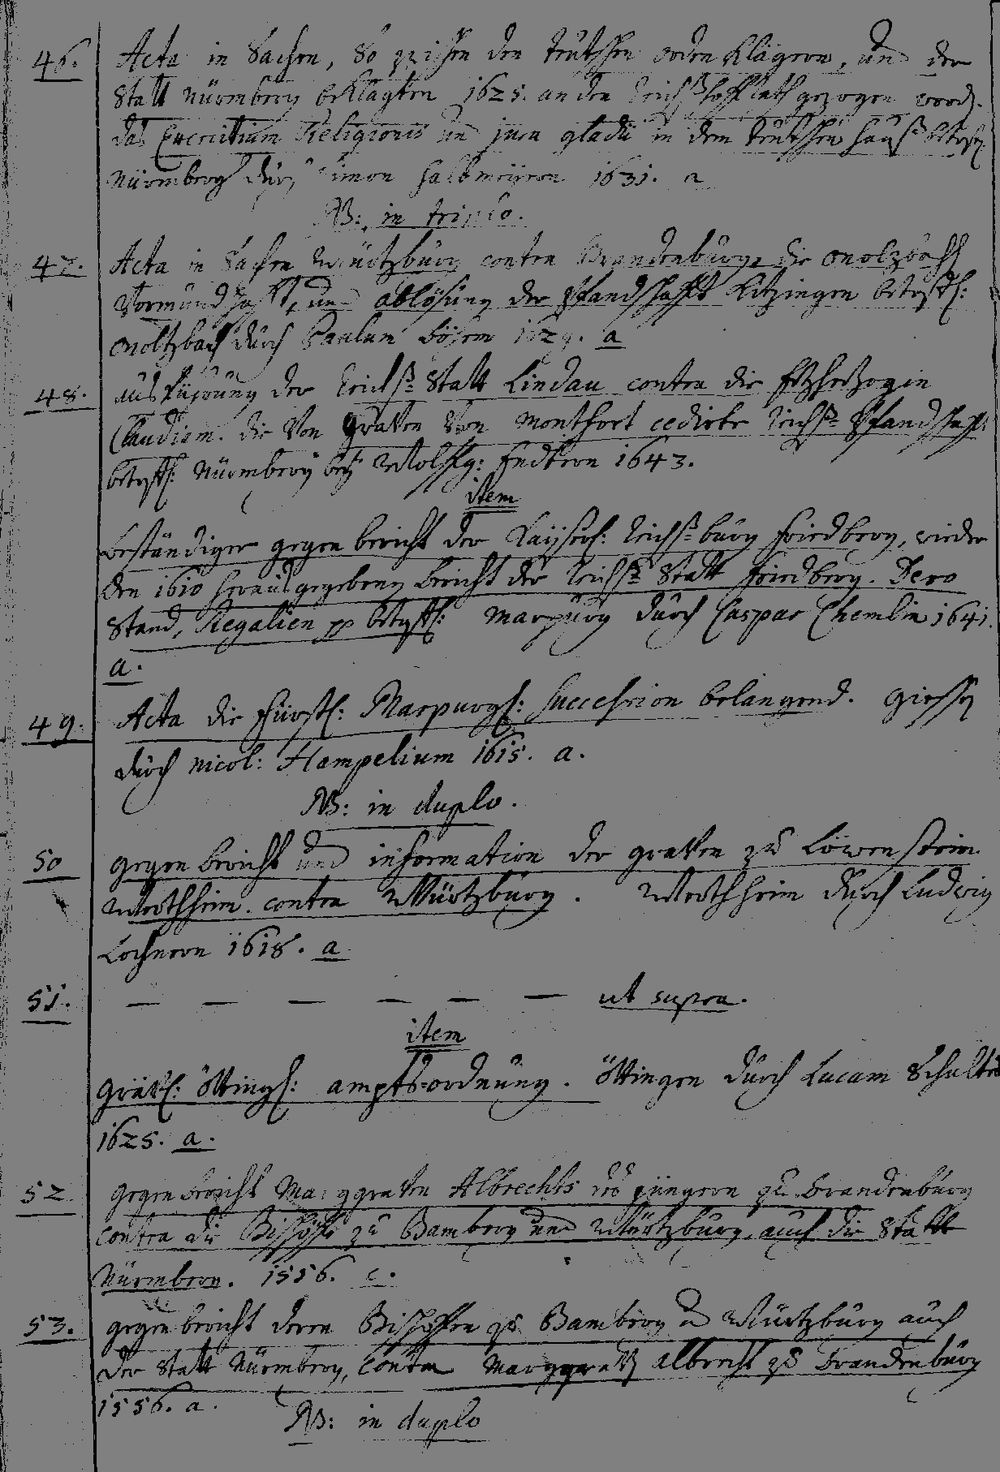 46. Acta in Sachen, So zwischen den teutschen orden Klägern, und der
Statt Nürmberg beklagten 1625. an den Reichs hoffrath gezogen word.
das Exercitium Religionis und jura gladii in dem teutschen hauß betreff.
Nürmberg durch Simon halbmeÿern 1631. a
NB: in triplo.
47. Acta in Sachen Würtzburg contra Brandenburg, die onolzbach
Vormundschafft, und ablösung der Pfandschafft Kitzingen betreffl:
onoltzbach durch Paulum Bösem 1629. a
48. ausführung der Reichs Statt Lindau contra die Ertzhertzogin
Claudiam. die Von Graven Von Montfort cedirte Reichs Pfandschafft
betreffl: Nürmberg beÿ Wolffg: Endtern 1643.
item
beständiger gegen bericht der Kaÿserl: Reichs burg Friedberg, wieder
den 1610 herausgegebenen bericht der Reichs Statt Friedberg. Dero
Stand, Regalien pp betreffl: Marpurg durch Caspar Chemlin 1641.
a.
49. Acta die Fürstl: Marpurgl: Succession belangend. Giessen
durch nicol: Hampelium 1615. a.
NB: in duplo.
50 gegen bericht und information der graven zu Löwenstein
Wertheim. contra Würtzburg. Wertheim durch Ludwig
Lochnern 1618. a
51. — — — — — — ut supra.
item
Grävl: öttingl: ampts-ordnung. öttingen durch Lucam Schultes
1625. a.
52 gegen bericht Marggraven Albrechts des jüngern zu Brandenburg
contra die Bischöffe zu Bamberg und Würtzburg, auch die Statt
Nürmberg. 1556. c.
53. gegen bericht deren Bischoffen zu Bamberg und Würtzburg auch
der Statt Nürmberg, contra Marggraff albrecht zu Brandenburg
1556. a.
NB: in duplo